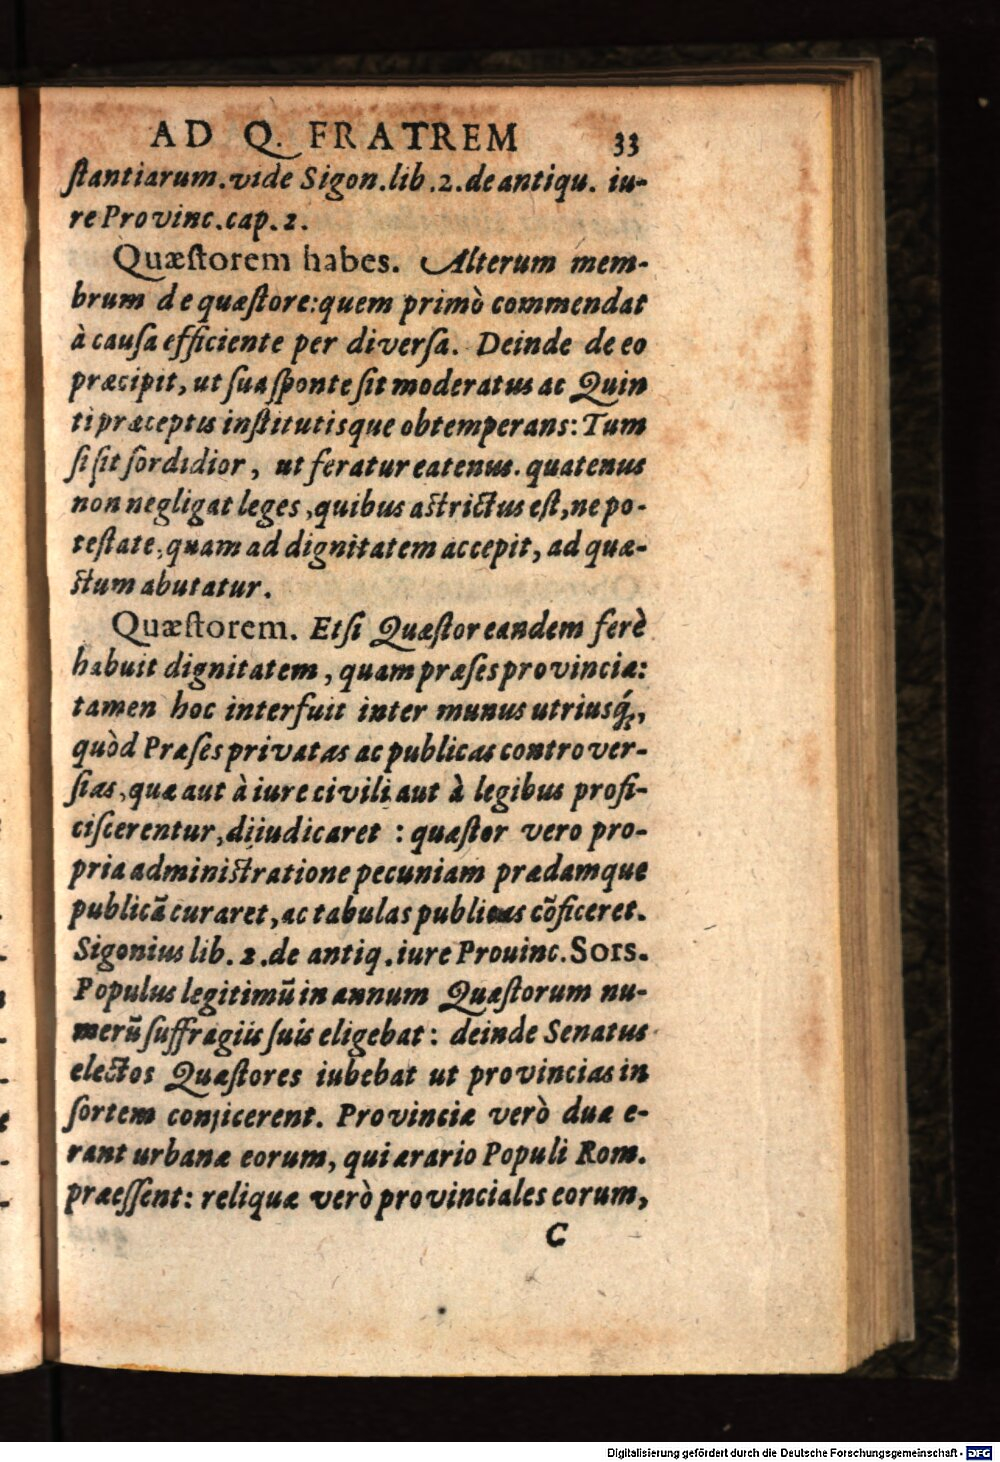 AD Q. FRATREM 33
ſtantiarum. vide Sigon. lib. 2. de antiqu. iu-
re Provinc. cap. 2.
Quæſtorem habes. Alterum mem-
brum de quæſtore: quem primò commendat
à cauſa efficiente per diverſa. Deinde de eo
præcipit, ut ſua ſponte ſit moderatus ac Quin
ti præceptis inſtitutisque obtemperans: Tum
ſi ſit ſordidior, ut feratur eatenus. quatenus
non negligat leges, quibus aſtrictus eſt, ne po-
teſtate, quam ad dignitatem accepit, ad quæ-
ſtum abutatur.
Quæſtorem. Etſi Quæſtor eandem ferè
habuit dignitatem, quam præſes provinciæ:
tamen hoc interfuit inter munus utriusq́;,
quòd Præſes privatas ac publicas controver-
ſias, quæ aut à iure civili aut à legibus profi-
ciſcerentur, diiudicaret: quæſtor vero pro-
pria adminiſtratione pecuniam prædamque
publicã curaret, ac tabulas publicas cõficeret.
Sigonius lib. 2. de antiq. iure Prouinc. Sors.
Populus legitimũ in annum Quæſtorum nu-
merũ ſuffragiis ſuis eligebat: deinde Senatus
electos Quæſtores iubebat ut provincias in
ſortem conjicerent. Provinciæ verò duæ e-
rant urbanæ eorum, qui ærario Populi Rom.
præeſſent: reliquæ verò provinciales eorum,
C
Digitalisierung gefördert durch die Deutsche Forschungsgemeinschaft - DFG